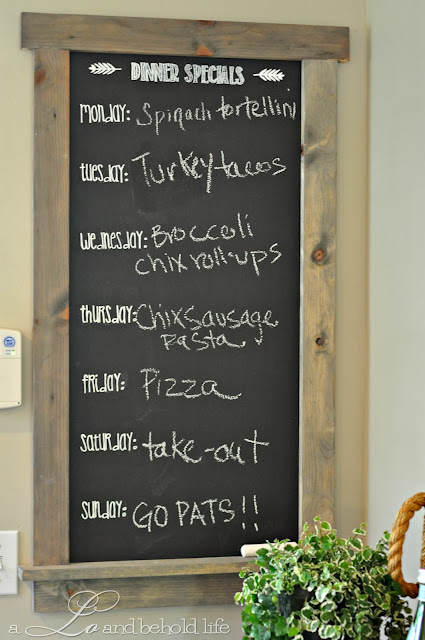 DINNER SPECIALS
MONDAY: Spinach tortellini
TUESDAY: Turkey tacos
WEDNESDAY: Broccoli
chix roll-ups
THURSDAY: Chix sausage
pasta
FRIDAY: Pizza
SATURDAY: take-out
SUNDAY: GO PATS!!
a Lo and behold life